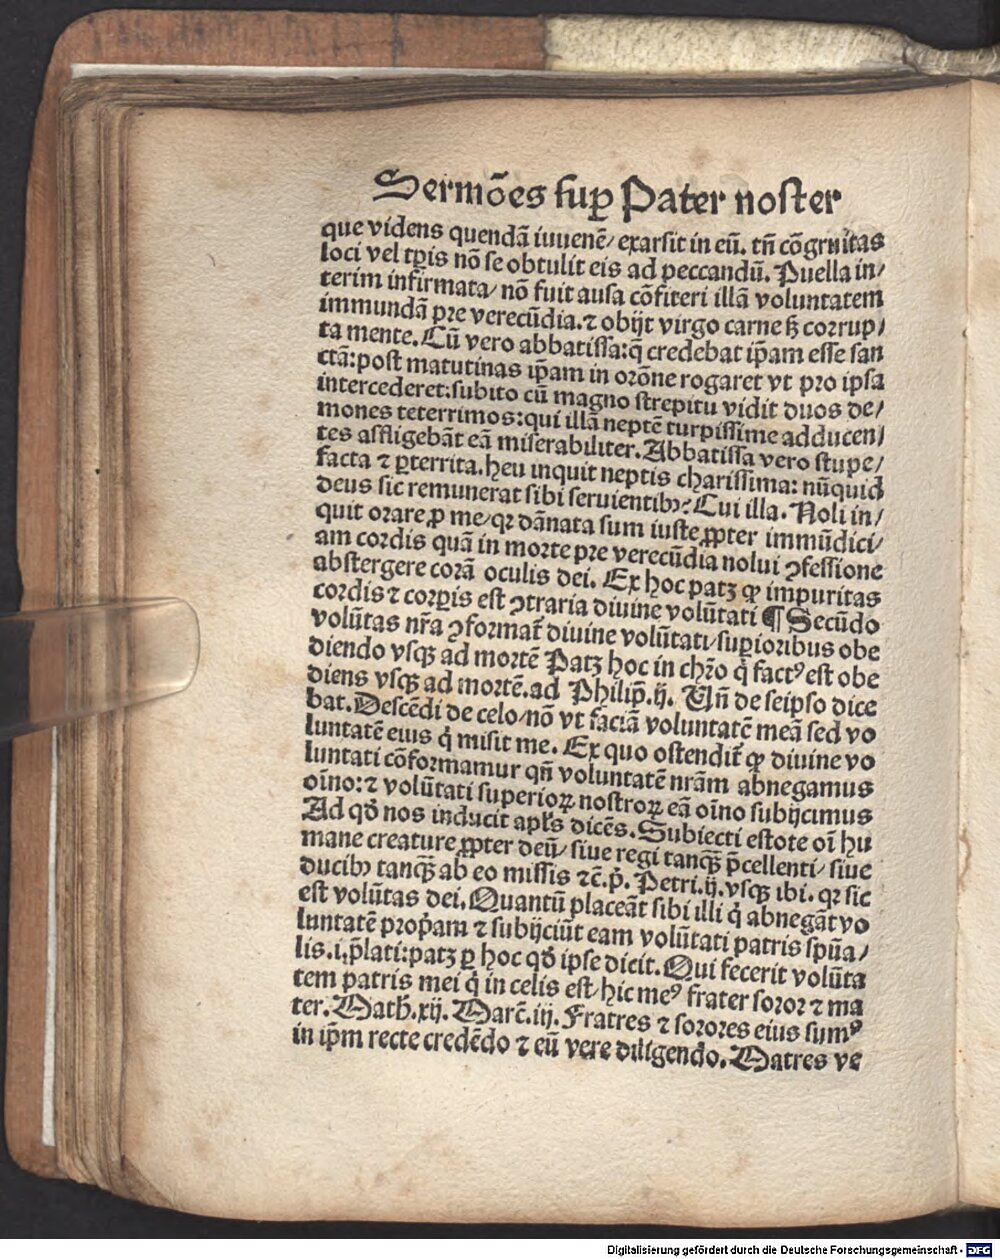 Sermões suꝑ Pater noster
que videns quendã iuuenẽ/ exarsit in eũ. tñ cõgruitas
loci vel tꝑis nõ se obtulit eis ad peccandũ. Puella in/
terim infirmata/ nõ fuit ausa cõfiteri illã voluntatem
immundã pre verecũdia. ⁊ obijt virgo carne ꝫ corrup/
ta mente. Cũ vero abbatissa: q̃ credebat ip̃am esse san
ctã: post matutinas ip̃am in orõne rogaret vt pro ipsa
intercederet: subito cũ magno strepitu vidit duos de/
mones teterrimos: qui illã neptẽ turpissime adducen/
tes affligebãt eã miserabiliter. Abbatissa vero stupe/
facta ⁊ ꝑterrita. heu inquit neptis charissima: nũquid
deus sic remunerat sibi seruientibꝰ? Cui illa. Noli in/
quit orare ꝓ me/ qꝛ dãnata sum iuste ꝓpter immũdici/
am cordis quã in morte pre verecũdia nolui ꝯfessione
abstergere corã oculis dei. Ex hoc patꝫ ꝙ impuritas
cordis ⁊ corꝑis est ꝯtraria diuine volũtati ¶ Secũdo
volũtas nr̃a ꝯformat̃ diuine volũtati/ suꝑioribus obe
diendo vsqꝫ ad mortẽ Patꝫ hoc in chr̃o q̇ factꝰ est obe
diens vsqꝫ ad mortẽ. ad Philip̃. ij. Vñ de seipso dice
bat. Descẽdi de celo/ nõ vt faciã voluntatẽ meã sed vo
luntatẽ eius q̇ misit me. Ex quo ostendit̃ ꝙ diuine vo
luntati cõformamur qñ voluntatẽ nrãm abnegamus
oĩno: ⁊ volũtati superioꝝ nostroꝝ eã oĩno subijcimus
Ad qð nos inducit apl̃s dicẽs. Subiecti estote oĩ hu
mane creature ꝓpter deũ/ siue regi tanqꝫ̃ p̃cellenti/ siue
ducibꝰ tanqꝫ̃ ab eo missis ⁊c̃. p̃. Petri. ij. vsqꝫ ibi. qꝛ sic
est volũtas dei. Quantũ placeãt sibi illi q̇ abnegãt vo
luntatẽ prop̃am ⁊ subijciũt eam volũtati patris sp̃ua/
lis. i. p̃lati: patꝫ ꝑ hoc qð ipse dicit. Qui fecerit volũta
tem patris mei q̇ in celis est/ hic meꝰ frater soror ⁊ ma
ter. Math̃. xij. Marc̃. iij. Fratres ⁊ sorores eius sumꝰ
in ip̃m recte credẽdo ⁊ eũ vere diligendo. Matres ve
Digitalisierung gefördert durch die Deutsche Forschungsgemeinschaft - DFG